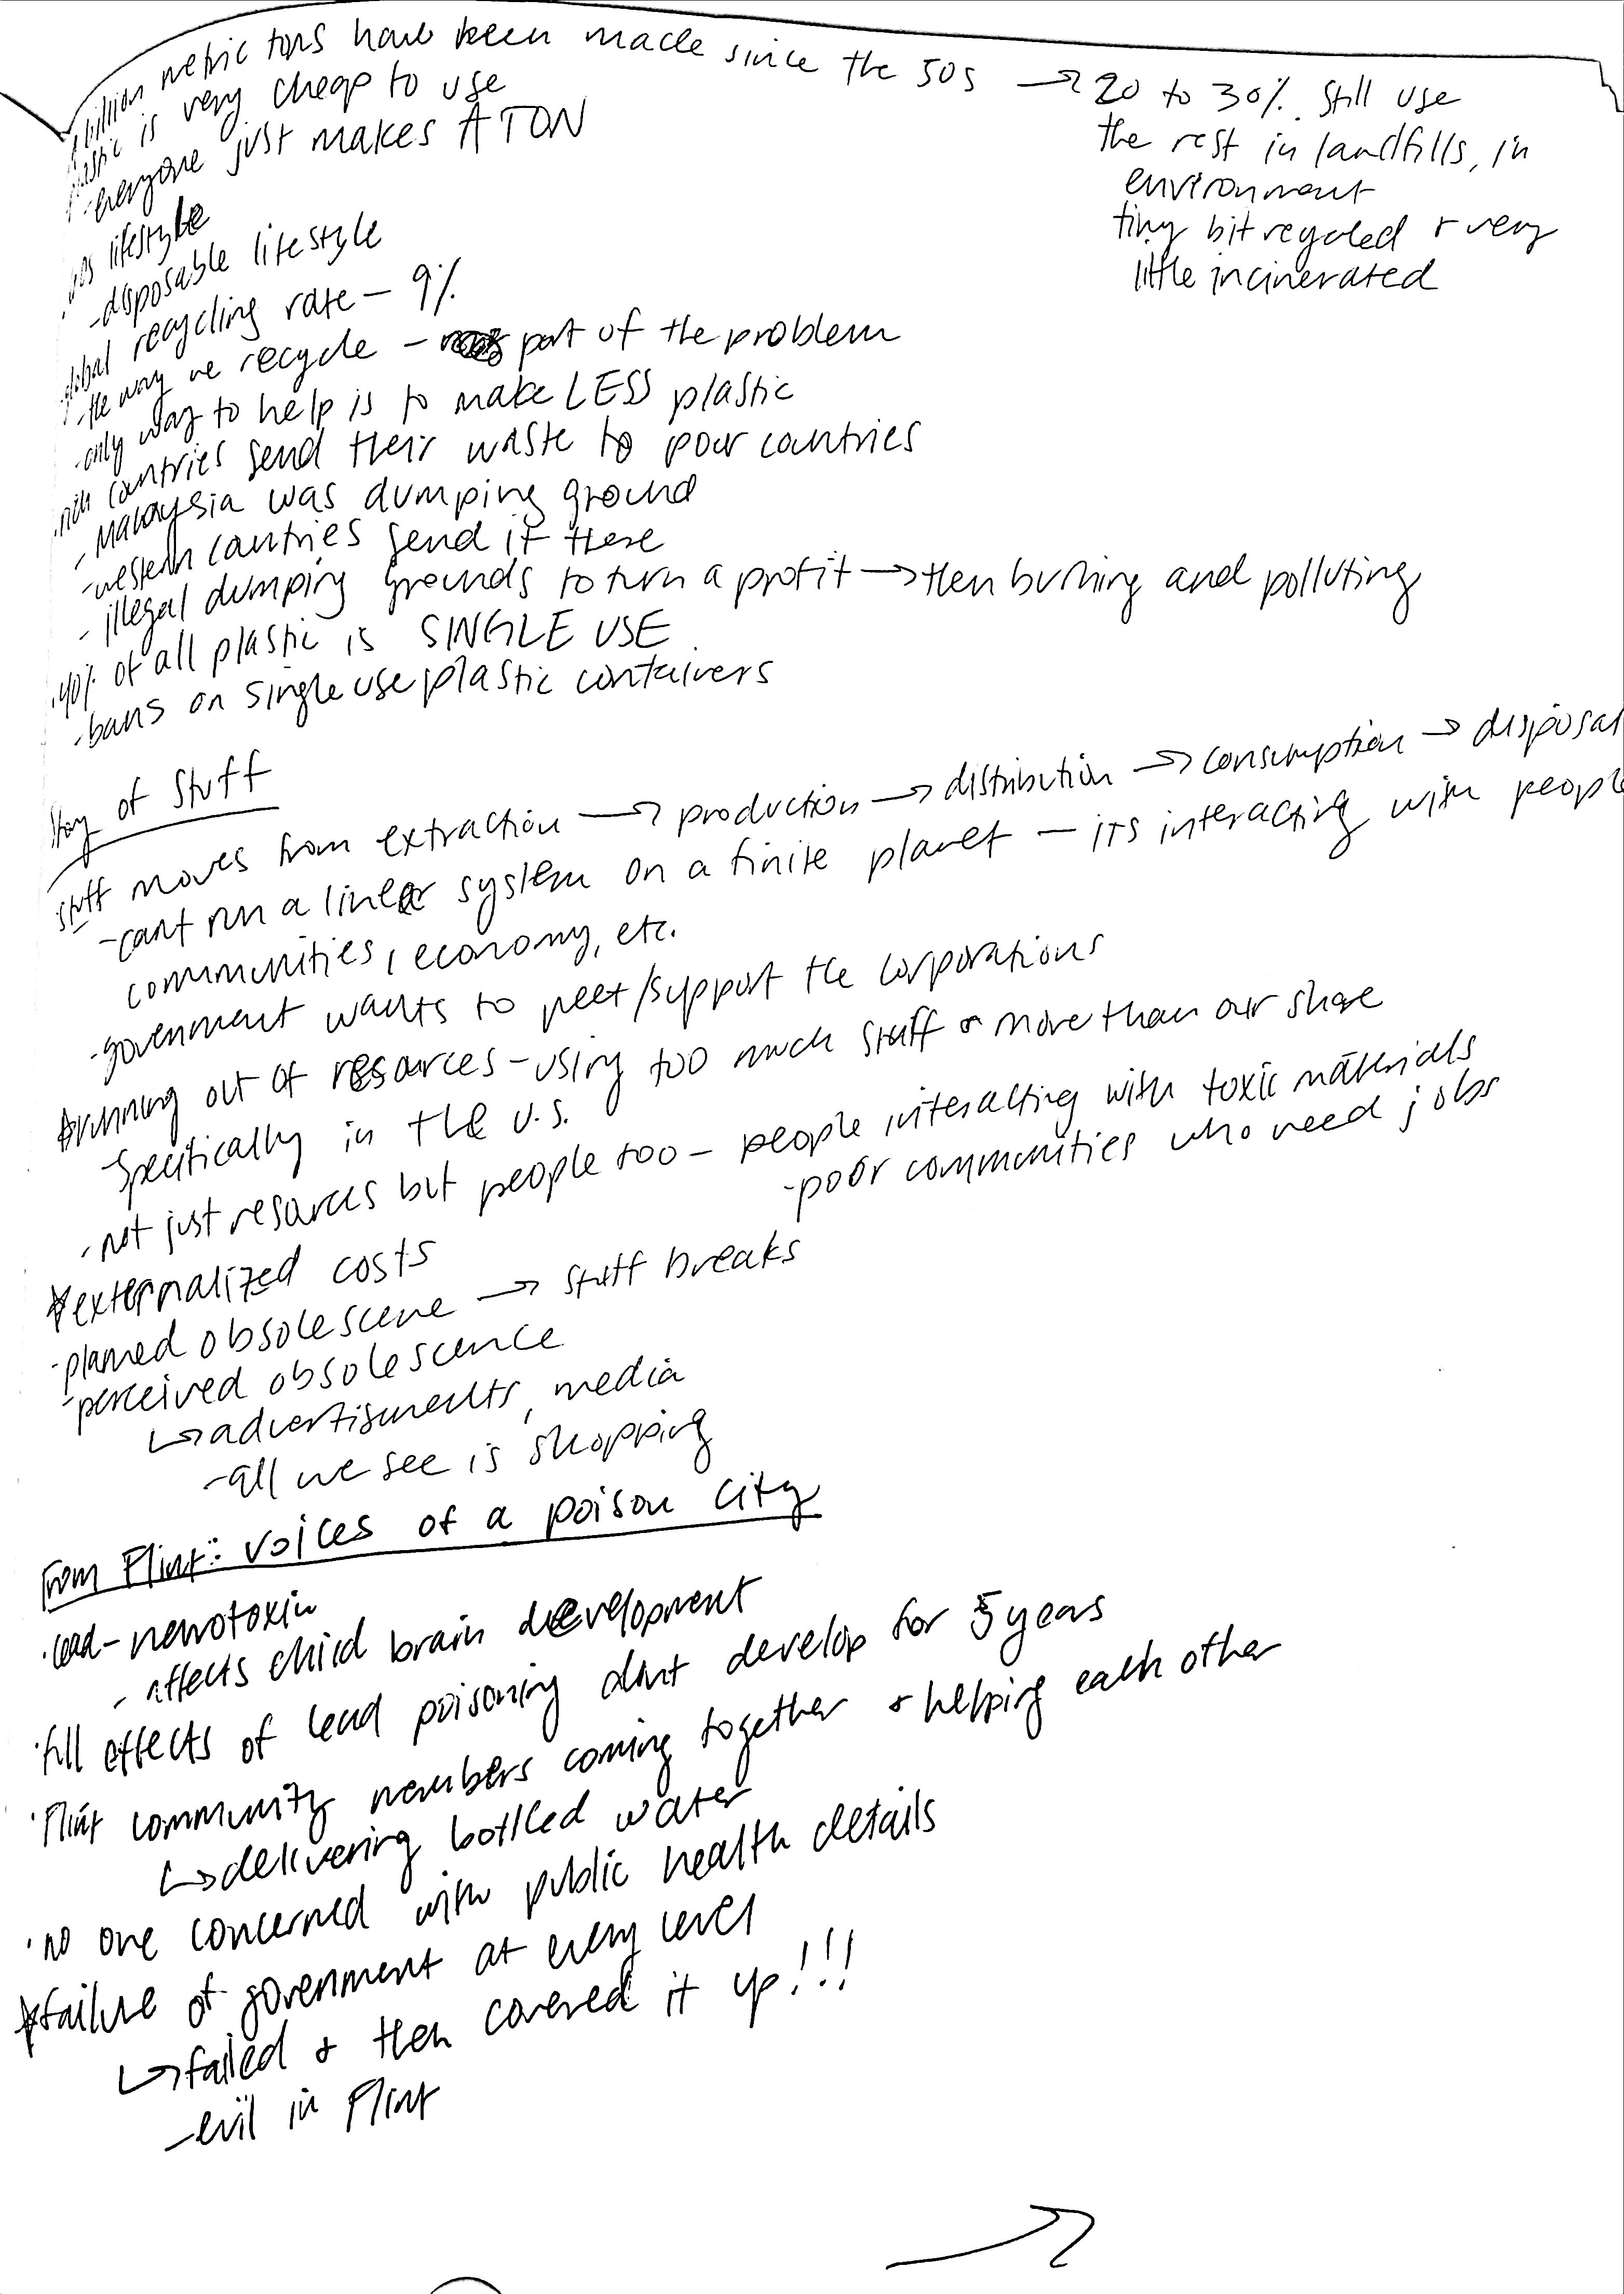 billion metric tons have been made since the 50s → 20 to 30% still use
the rest in landfills, in
environment
tiny bit recycled & very
little incinerated
plastic is very cheap to use
-everyone just makes A TON
lifestyle
-disposable lifestyle
global recycling rate - 9%
-the way we recycle - part of the problem
-only way to help is to make LESS plastic
·rich countries send their waste to poor countries
-Malaysia was dumping ground
-western countries send it there
-illegal dumping grounds to turn a profit → then burning and polluting
·40% of all plastic is SINGLE USE
-bans on single use plastic containers
Story of Stuff
stuff moves from extraction → production → distribution → consumption → disposal
-cant run a linear system on a finite planet - its interacting with people
communities, economy, etc.
-government wants to meet/support the corporations
*running out of resources - using too much stuff & more than our share
-specifically in the U.S.
-not just resources but people too - people interacting with toxic materials
-poor communities who need jobs
*externalized costs
-planned obsolescene → stuff breaks
-perceived obsolescence
↳ advertisments, media
-all we see is shopping
From Flint: voices of a poison city
·lead - neurotoxin
- affects child brain development
·full effects of lead poisoning dont develop for 5 years
·Flint community members coming together & helping each other
↳ delivering bottled water
·no one concerned with public health details
*failure of government at every level
↳ failed & then covered it up!!!
-evil in Flint